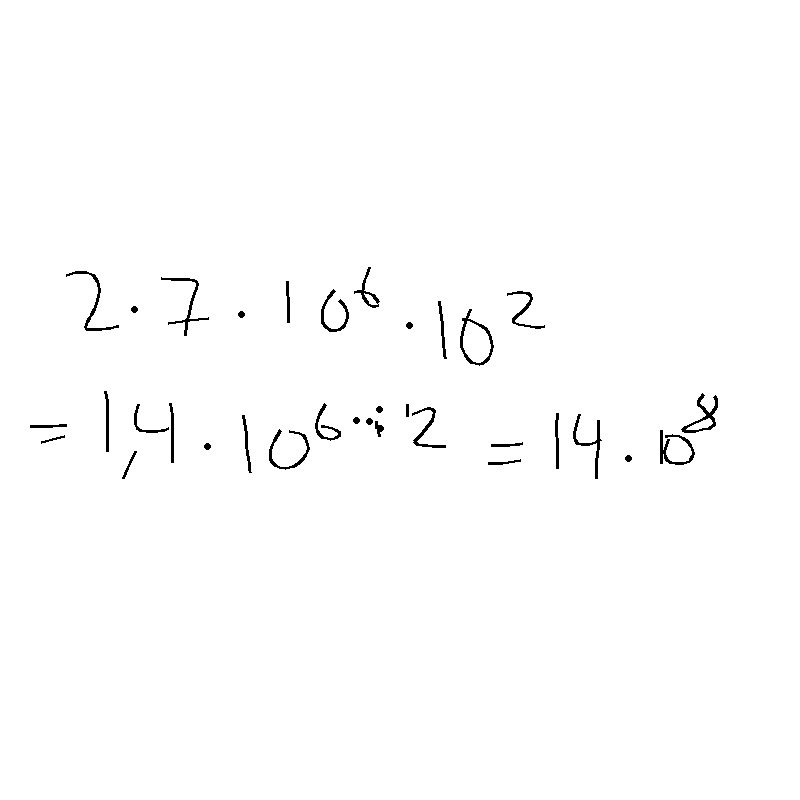 2 · 7 · 10⁶ · 10²
= 1,4 · 10⁶ ² = 14 · 10⁸